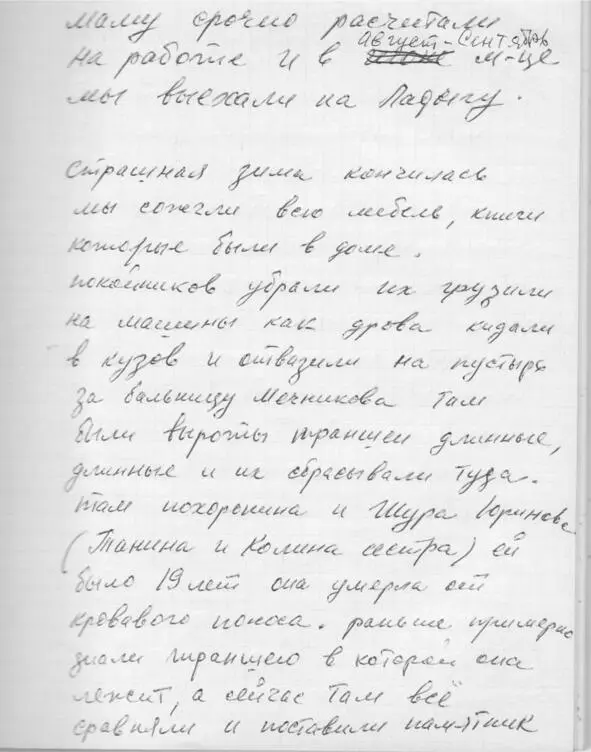 маму срочно расчитали
август-сентябрь
на работе и в м-це
мы выехали на Ладогу.
страшная зима кончилась
мы сожгли всю мебель, книги
которые были в доме.
покойников убрали их грузили
на машины как дрова кидали
в кузов и отвазили на пустырь
за бальницу Мечникова там
были вырыты траншеи длинные,
длинные и их сбрасывали туда.
там похоронина и Шура Юринова
(Танина и Колина сестра) ей
было 19 лет она умерла от
кровавого поноса. раньше примерно
знали траншею в которой она
лежит, а сейчас там всё
сравняли и поставили памятник